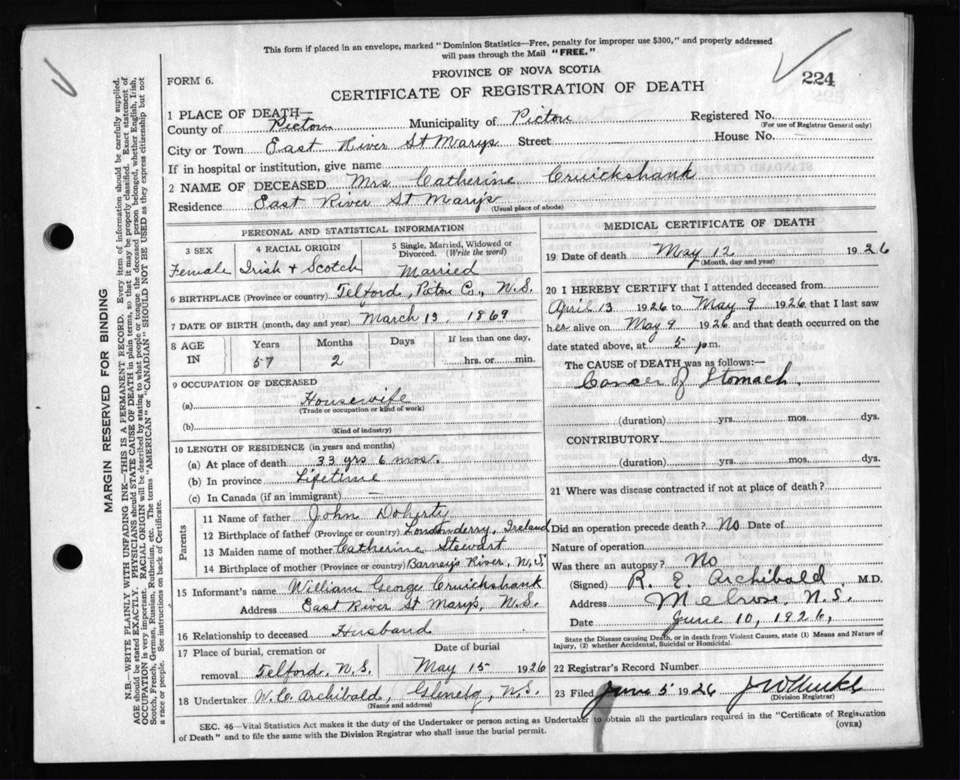 This form if placed in an envelope, marked "Dominion Statistics—Free, penalty for improper use $300," and properly addressed
will pass through the Mail "FREE."
FORM 6.
PROVINCE OF NOVA SCOTIA
224
CERTIFICATE OF REGISTRATION OF DEATH
1 PLACE OF DEATH—
County of Pictou Municipality of Pictou Registered No.
(For use of Registrar General only)
City or Town East River St Marys Street — House No. —
If in hospital or institution, give name
2 NAME OF DECEASED Mrs Catherine Cruickshank
Residence East River St Marys
(Usual place of abode)
PERSONAL AND STATISTICAL INFORMATION
3 SEX 4 RACIAL ORIGIN 5 Single, Married, Widowed or
Divorced. (Write the word)
Female Irish & Scotch Married
6 BIRTHPLACE (Province or country) Telford, Pictou Co., N.S.
7 DATE OF BIRTH (month, day and year) March 13, 1869
8 AGE IN Years Months Days If less than one day,
57 2 hrs. or min.
9 OCCUPATION OF DECEASED
(a) Housewife
(Trade or occupation or kind of work)
(b)
(Kind of industry)
10 LENGTH OF RESIDENCE (in years and months)
(a) At place of death 33 yrs 6 mos.
(b) In province Lifetime
(c) In Canada (if an immigrant) —
Parents
11 Name of father John Doherty
12 Birthplace of father (Province or country) Londonderry, Ireland
13 Maiden name of mother Catherine Stewart
14 Birthplace of mother (Province or country) Barney's River, N.S.
15 Informant's name William George Cruickshank
Address East River St Marys, N.S.
16 Relationship to deceased Husband
17 Place of burial, cremation or Date of burial
removal Telford, N.S. May 15 1926
18 Undertaker W. C. Archibald, Glenelg, N.S.
(Name and address)
MEDICAL CERTIFICATE OF DEATH
19 Date of death May 12 1926
(Month, day and year)
20 I HEREBY CERTIFY that I attended deceased from
April 13 1926 to May 9 1926, that I last saw
her alive on May 9 1926 and that death occurred on the
date stated above, at 5 pm.
The CAUSE OF DEATH was as follows:—
Cancer of Stomach.
(duration) yrs. mos. dys.
CONTRIBUTORY
(duration) yrs. mos. dys.
21 Where was disease contracted if not at place of death?
Did an operation precede death? No Date of
Nature of operation
Was there an autopsy? No
(Signed) R. E. Archibald, M.D.
Address Melrose, N.S.
Date June 10, 1926,
State the Disease causing Death, or in death from Violent Causes, state (1) Means and Nature of
Injury, (2) whether Accidental, Suicidal or Homicidal.
22 Registrar's Record Number
23 Filed June 5 1926
(Division Registrar)
SEC. 46—Vital Statistics Act makes it the duty of the Undertaker or person acting as Undertaker to obtain all the particulars required in the "Certificate of Registration
of Death" and to file the same with the Division Registrar who shall issue the burial permit.
(OVER)
MARGIN RESERVED FOR BINDING
N.B.—WRITE PLAINLY WITH UNFADING INK—THIS IS A PERMANENT RECORD. Every item of information should be carefully supplied.
AGE should be stated EXACTLY. PHYSICIANS should STATE CAUSE OF DEATH in plain terms, so that it may be properly classified. Exact statement of
OCCUPATION is very important. RACIAL ORIGIN will be described by stating to what people or tongue the deceased person belonged, whether English, Irish,
Scotch, French, German, Russian, Ruthenian, etc. The terms "AMERICAN" or "CANADIAN" SHOULD NOT BE USED as they express citizenship but not
a race or people. See instructions on back of Certificate.